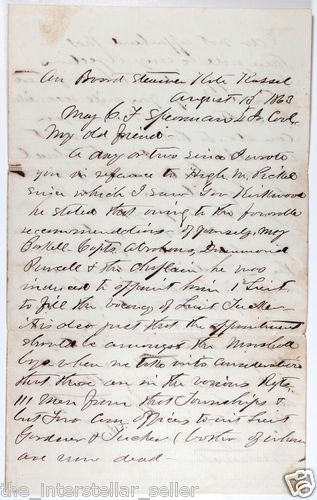 On Board Steamer Kate Kassel
August 1st 1863
Maj C. F. Spearman 4 Ia Cav.
My old friend -
A day or two since I wrote
you in reference to Hugh M. Pickel
since which I saw Gov Kirkwood
he stated that owing to the favorable
recommendations of yourself, Maj
Capts Abrahams, Drummond
Purcell & the chaplain he was
induced to appoint him 1 Lieut
to fill the vacancy of Lieut Tucker
it is also just that the appointment
should be amongst the Marshall
boys when we take into consideration
that there are in the various Regts.
111 men from that Township &
but two Com offices to wit Lieut
Gardner & Tucker (both of whom
are now dead -
© the_interstellar_seller
ebay